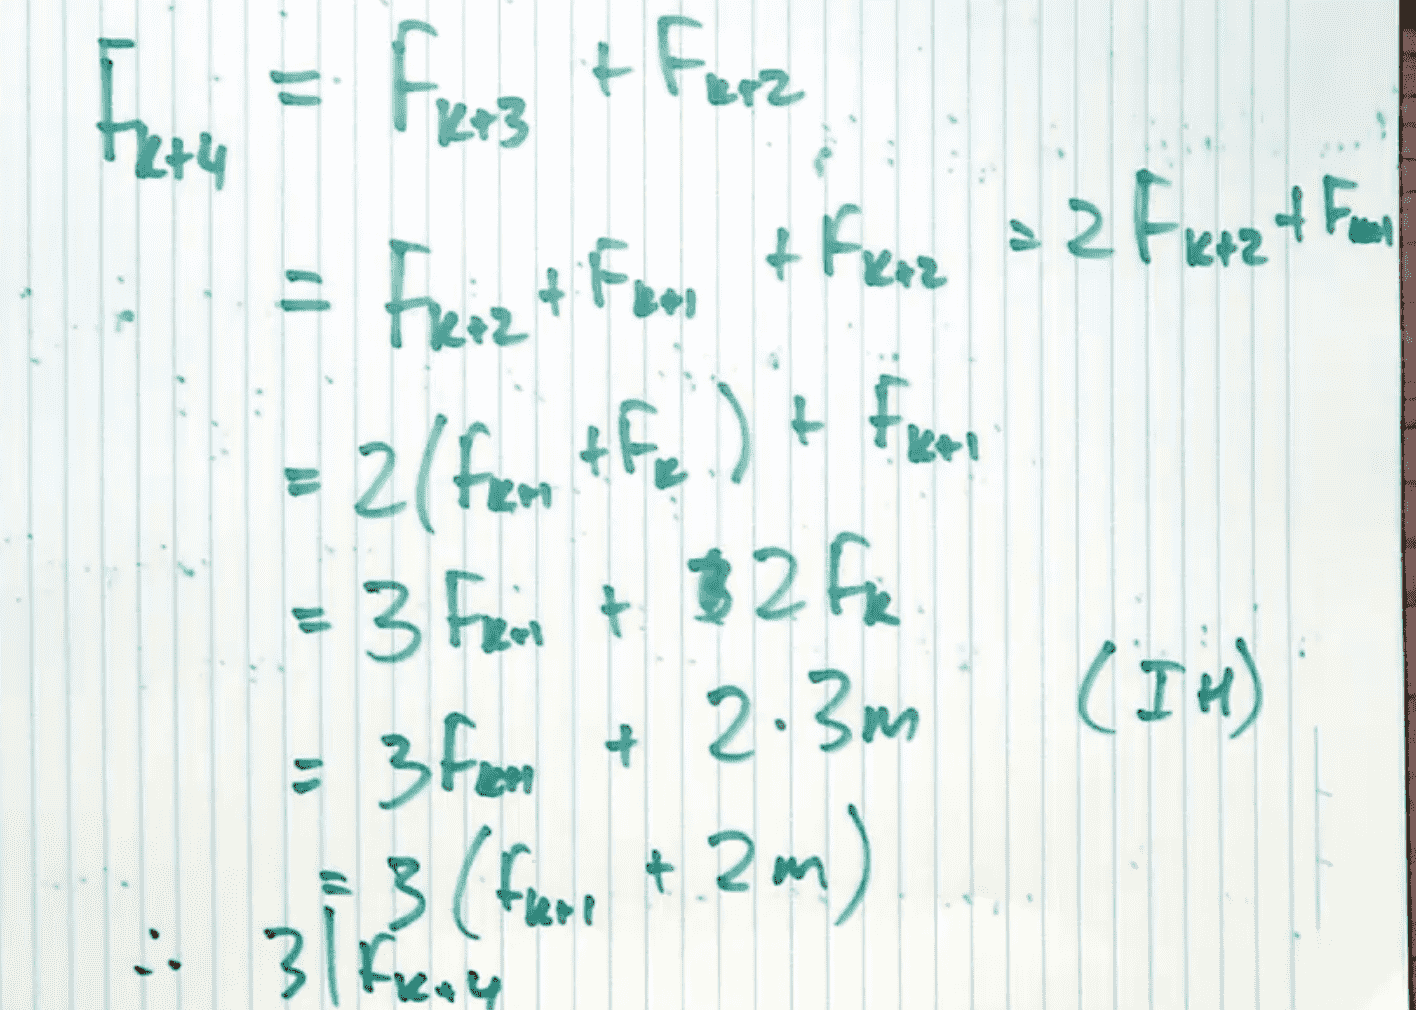 F_{k+4} = F_{k+3} + F_{k+2}
= F_{k+2} + F_{k+1} + F_{k+2} = 2 F_{k+2} + F_{k+1}
= 2(F_{k+1} + F_k) + F_{k+1}
= 3 F_{k+1} + 2 F_k
= 3 F_{k+1} + 2·3m (IH)
= 3(F_{k+1} + 2m)
∴ 3|F_{k+4}